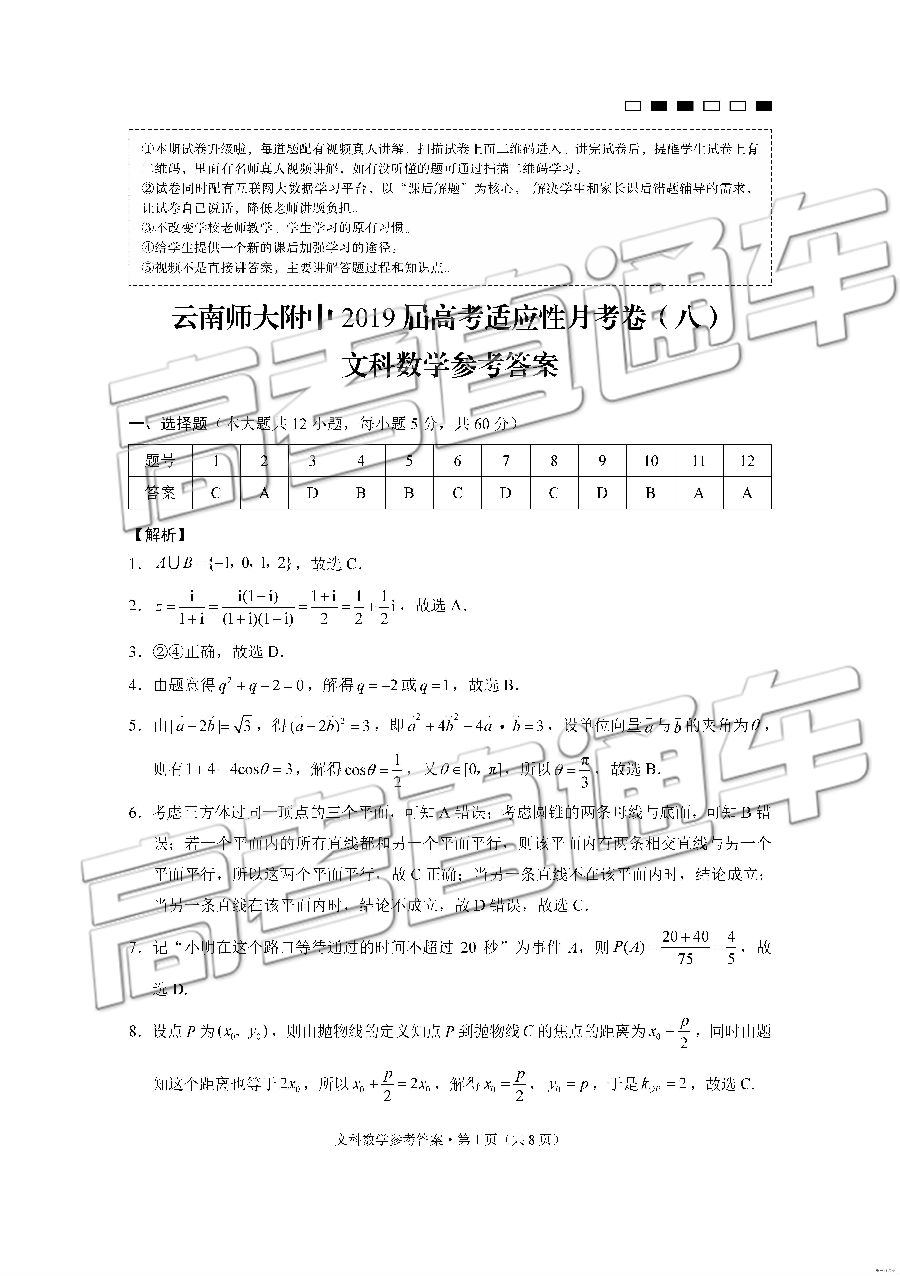 ①本期试卷升级啦，每道题配有视频真人讲解，扫描试卷上面二维码进入，讲完试卷后，提醒学生试卷上有
二维码，里面有名师真人视频讲解，如有没听懂的题可通过扫描二维码学习。
②试卷同时配有互联网大数据学习平台，以“课后解题”为核心，解决学生和家长课后错题辅导的需求，
让试卷自己说话，降低老师讲题负担。
③不改变学校老师教学、学生学习的原有习惯。
④给学生提供一个新的课后加强学习的途径。
⑤视频不是直接讲答案，主要讲解答题过程和知识点。
云南师大附中 2019 届高考适应性月考卷（八）
文科数学参考答案
一、选择题（本大题共 12 小题，每小题 5 分，共 60 分）
题号 1 2 3 4 5 6 7 8 9 10 11 12
答案 C A D B B C D C D B A A
【解析】
1．A∪B={-1，0，1，2}，故选 C．
2．z=i/(1+i)=i(1-i)/((1+i)(1-i))=(1+i)/2=1/2+1/2 i，故选 A．
3．②④正确，故选 D．
4．由题意得 q²+q-2=0，解得 q=-2 或 q=1，故选 B．
5．由|a-2b|=√3，得(a-2b)²=3，即 a²+4b²-4a·b=3，设单位向量 a 与 b 的夹角为 θ，
则有 1+4-4cosθ=3，解得 cosθ=1/2，又 θ∈[0，π]，所以 θ=π/3，故选 B．
6．考虑正方体过同一顶点的三个平面，可知 A 错误；考虑圆锥的两条母线与底面，可知 B 错
误；若一个平面内的所有直线都和另一个平面平行，则该平面内有两条相交直线与另一个
平面平行，所以这两个平面平行，故 C 正确；当另一条直线不在该平面内时，结论成立；
当另一条直线在该平面内时，结论不成立，故 D 错误，故选 C．
7．记“小明在这个路口等待通过的时间不超过 20 秒”为事件 A，则 P(A)=(20+40)/75=4/5，故
选 D．
8．设点 P 为(x₀，y₀)，则由抛物线的定义知点 P 到抛物线 C 的焦点的距离为 x₀+p/2，同时由题
知这个距离也等于 2x₀，所以 x₀+p/2=2x₀，解得 x₀=p/2，y₀=p，于是 k=2，故选 C．
文科数学参考答案·第 1 页（共 8 页）
高考直通车
高考直通车